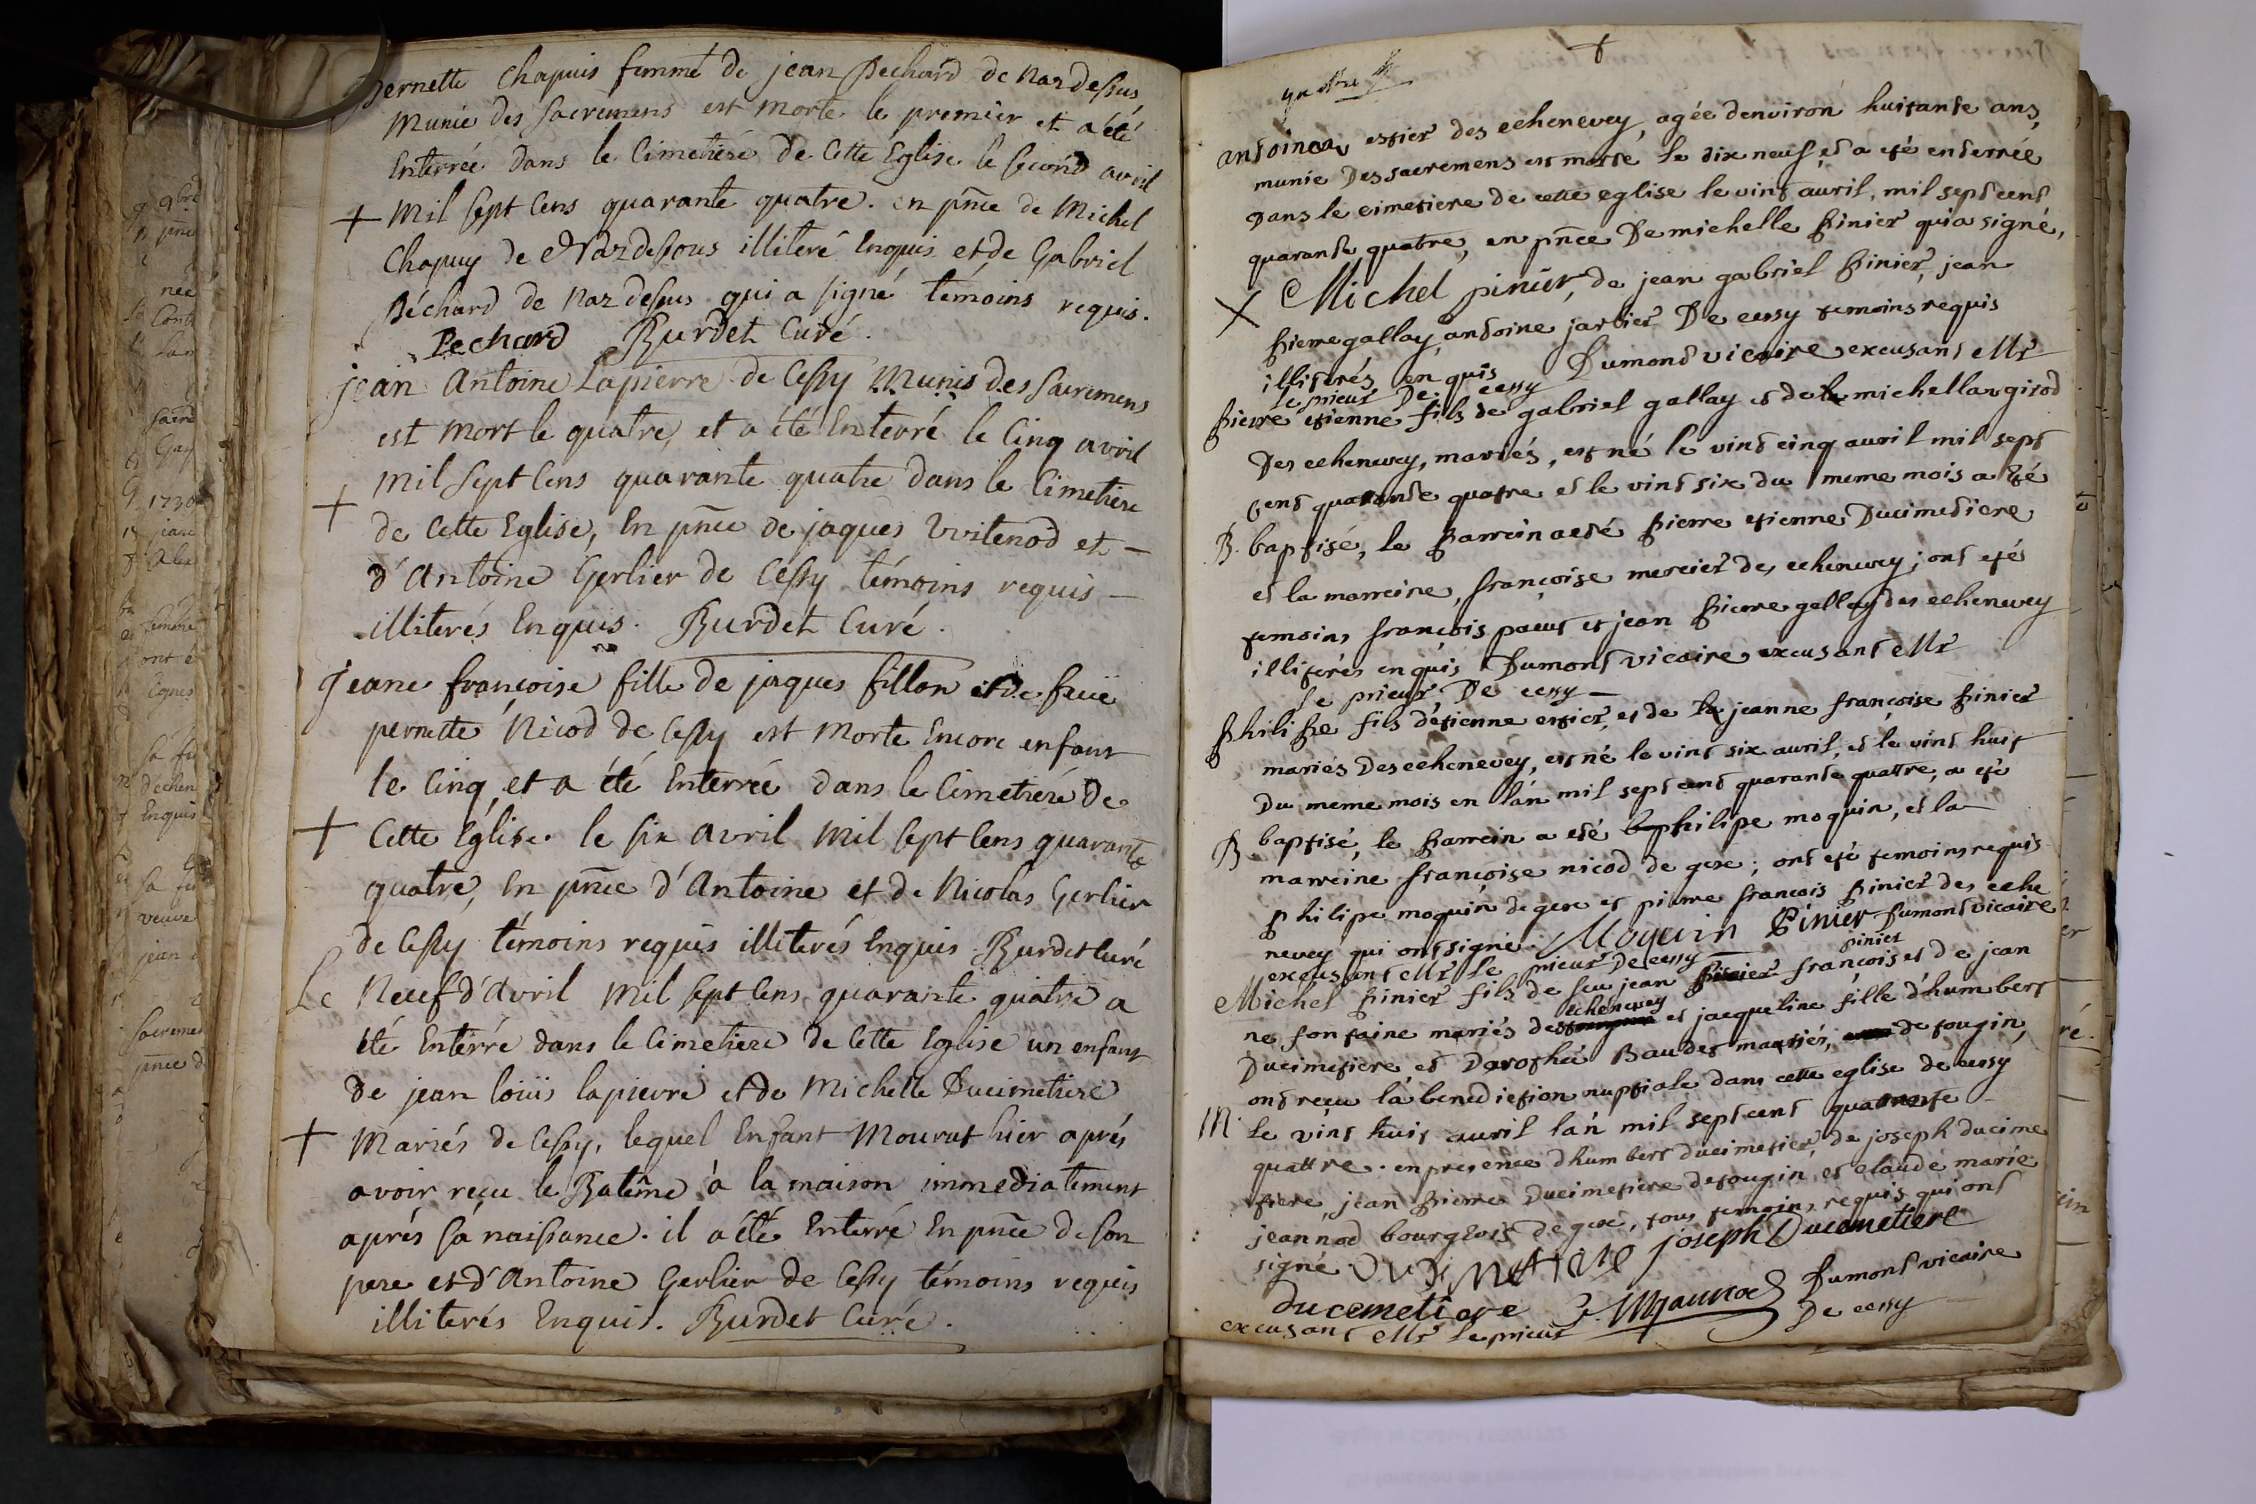 pernette Chapuis femme de jean Pechard de Naz dessus
Munie des Sacremens est morte le premier et a été
Enterrée dans le Cimetiére de Cette Eglise le second avril
+ Mil sept Cens quarante quatre. en pñce de Michel
Chapuy de Nazdessous illiteré Enquis et de Gabriel
Péchard de Naz dessus qui a signé témoins requis.
Pechard Burdet Curé.
jean Antoine Lapierre de Cessy Munis des Sacremens
est mort le quatre, et a été Enterré le Cinq avril
Mil sept Cens quarante quatre dans le Cimetiére
+ de Cette Eglise, En pñce de jaques Vvitenod et
d'Antoine Gerlier de Cessy témoins requis
illiterés Enquis. Burdet Curé.
jeane françoise fille de jaques fillon et de feuë
pernette Nicod de Cessy est Morte Encore enfant
le Cinq, et a été Enterrée dans le Cimetiére de
+ Cette Eglise. le six avril Mil sept Cens quarante
quatre, En pñce d'Antoine et de Nicolas Gerlier
de Cessy témoins requis illiterés Enquis Burdet Curé
Le Neuf d'Avril Mil sept Cens quarante quatre a
été Enterré dans le Cimetiere de Cette Eglise un enfant
de jean loüis lapierre et de Michelle Ducimetiere
+ Mariés de Cessy, lequel Enfant Mourut hier aprés
avoir reçu le Batême à la maison immediatement
aprés sa naissance. il a été Enterré En pñce de son
pere et d'Antoine Gerlier de Cessy témoins requis
illiterés Enquis. Burdet Curé.
+
antoinea estier des echenevey, agée denviron huitante ans,
munie des sacremens est morte le dix neuf, et a eté enterrée
dans le cimetiere de cette eglise le vint auril, mil sept cent
quarante quatre, en pñce De michelle pinier qui a signé,
X Michel pinier, de jean gabriel pinier, jean
pierre gallay, antoine jarlier De cessy temoins requis
illiterés enquis Dumont vicaire excusant Mr
le prieur De cessy
pierre etienne fils de gabriel gallay et de la michella girod
Des echenevey, mariés, est né le vint cinq auril mil sept
cent quarante quatre et le vint six du meme mois a eté
B. baptisé, le parrein a eté pierre etienne Ducimetiere
et la marreine, françoise mercier des echenevey; ont eté
temoins françois paeut et jean pierre gallay des echenevey
illiterés enquis Dumont vicaire excusant Mr
le prieur De cessy
philipe fils d'etienne estier, et de la jeanne françoise pinier
mariés Des echenevey, est né le vint six auril, et le vint huit
Du meme mois en l'an mil sept cent quarante quattre, a eté
B baptisé, le parrein a eté philipe moquin, et la
marreine françoise nicod de gex; ont eté temoins requis
philipe moquin de gex et pierre francois pinier des eche
nevey qui ont signé. Moquin Pinier Dumont vicaire
excusant Mr le prieur De cessy
pinier
Michel pinier fils de feu jean pinier françois et de jean
echenevey
ne fontaine mariés des et jacqueline fille d'humbert
Ducimetiere, et Dorothée Baudet mariés, de tougin,
ont reçu la benediction nuptiale dans cette eglise de cessy
M. le vint huit auril l'an mil sept cent quarante
quattre. en presence d'humbert ducimetier, de joseph ducime
tiere, jean pierre Ducimetiere de tougin, et claude marie
jeannod bourgeois de gex, tous temoins requis qui ont
signé. joseph Ducemetiere
ducemetiere Dumont vicaire
excusant Mr le prieur De cessy